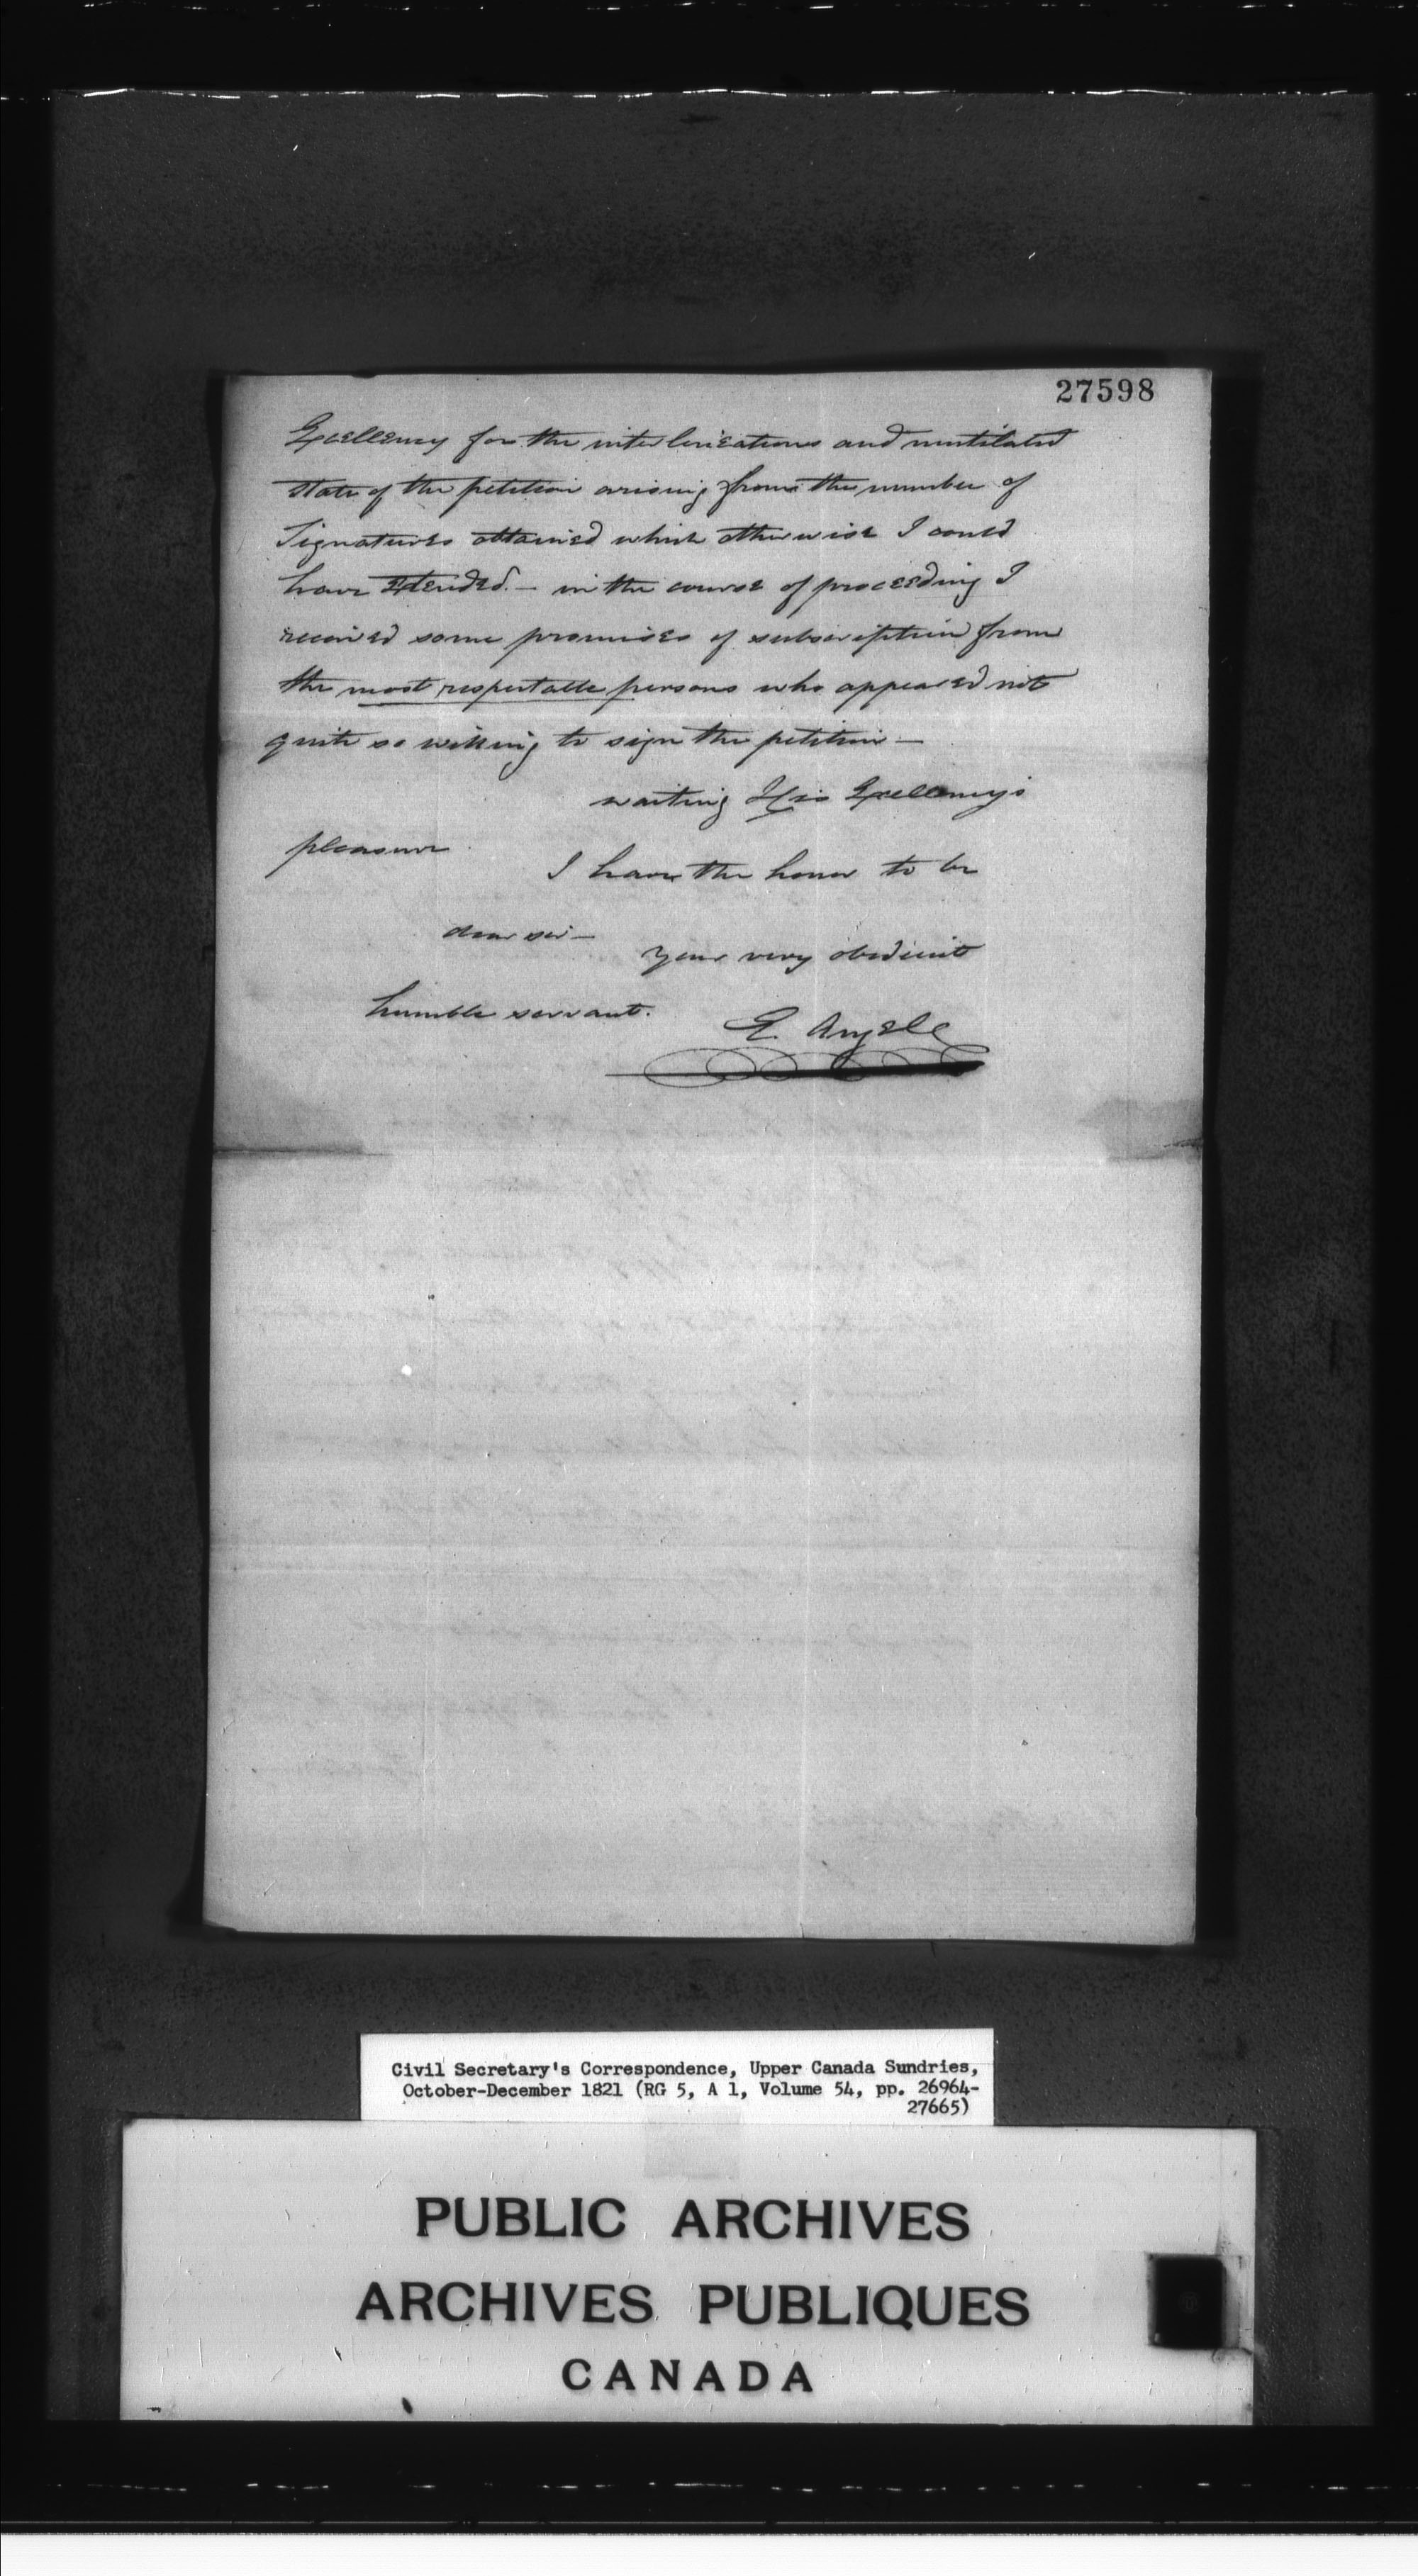 27598
Excellency for the interlineations and mutilated
state of the petition arising from the number of
Signatures obtained which otherwise I could
have extended. — in the course of proceeding I
received some promises of subscription from
the most respectable persons who appeared not
quite so willing to sign the petition —
waiting His Excellency's
pleasure
I have the honor to be
dear sir —
your very obedient
humble servant.
E. Angele
Civil Secretary's Correspondence, Upper Canada Sundries,
October-December 1821 (RG 5, A 1, Volume 54, pp. 26964-
27665)
PUBLIC ARCHIVES
ARCHIVES PUBLIQUES
CANADA